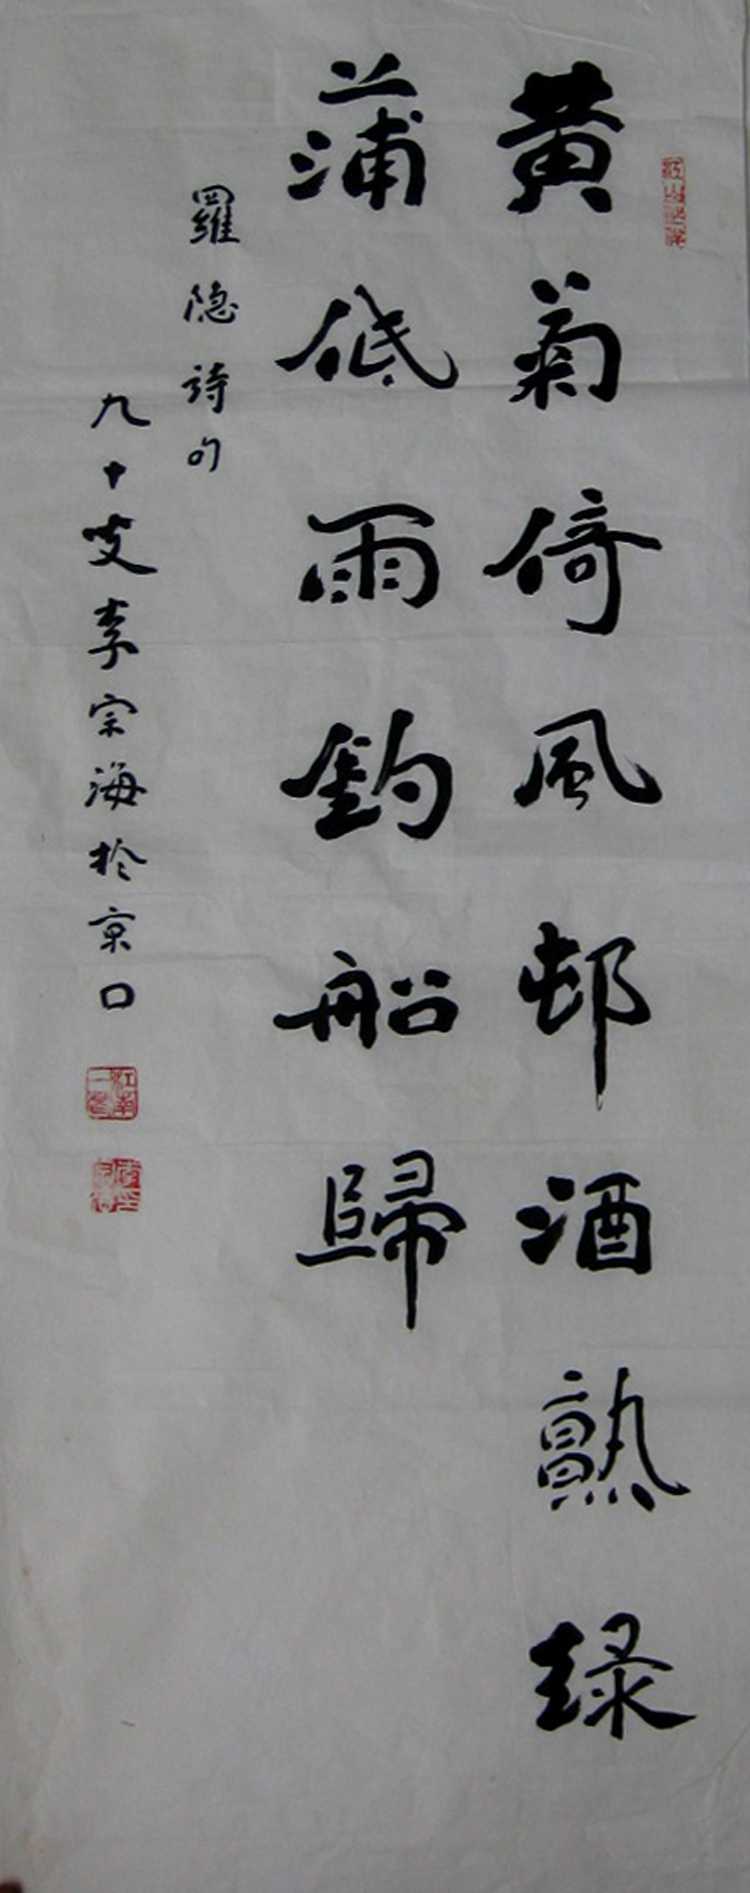 黄菊倚風邨酒熟緑
蒲低雨釣船歸
羅隐詩句
九十叟李宗海於京口